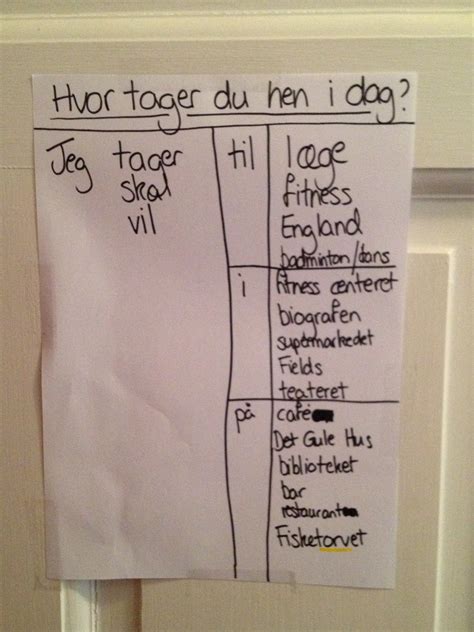 Hvor tager du hen i dag?
Jeg tager til læge
skal fitness
vil England
badminton/dans
i fitness centeret
biografen
supermarkedet
Fields
teateret
på café
Det Gule Hus
biblioteket
bar
restaurant
Fisketorvet